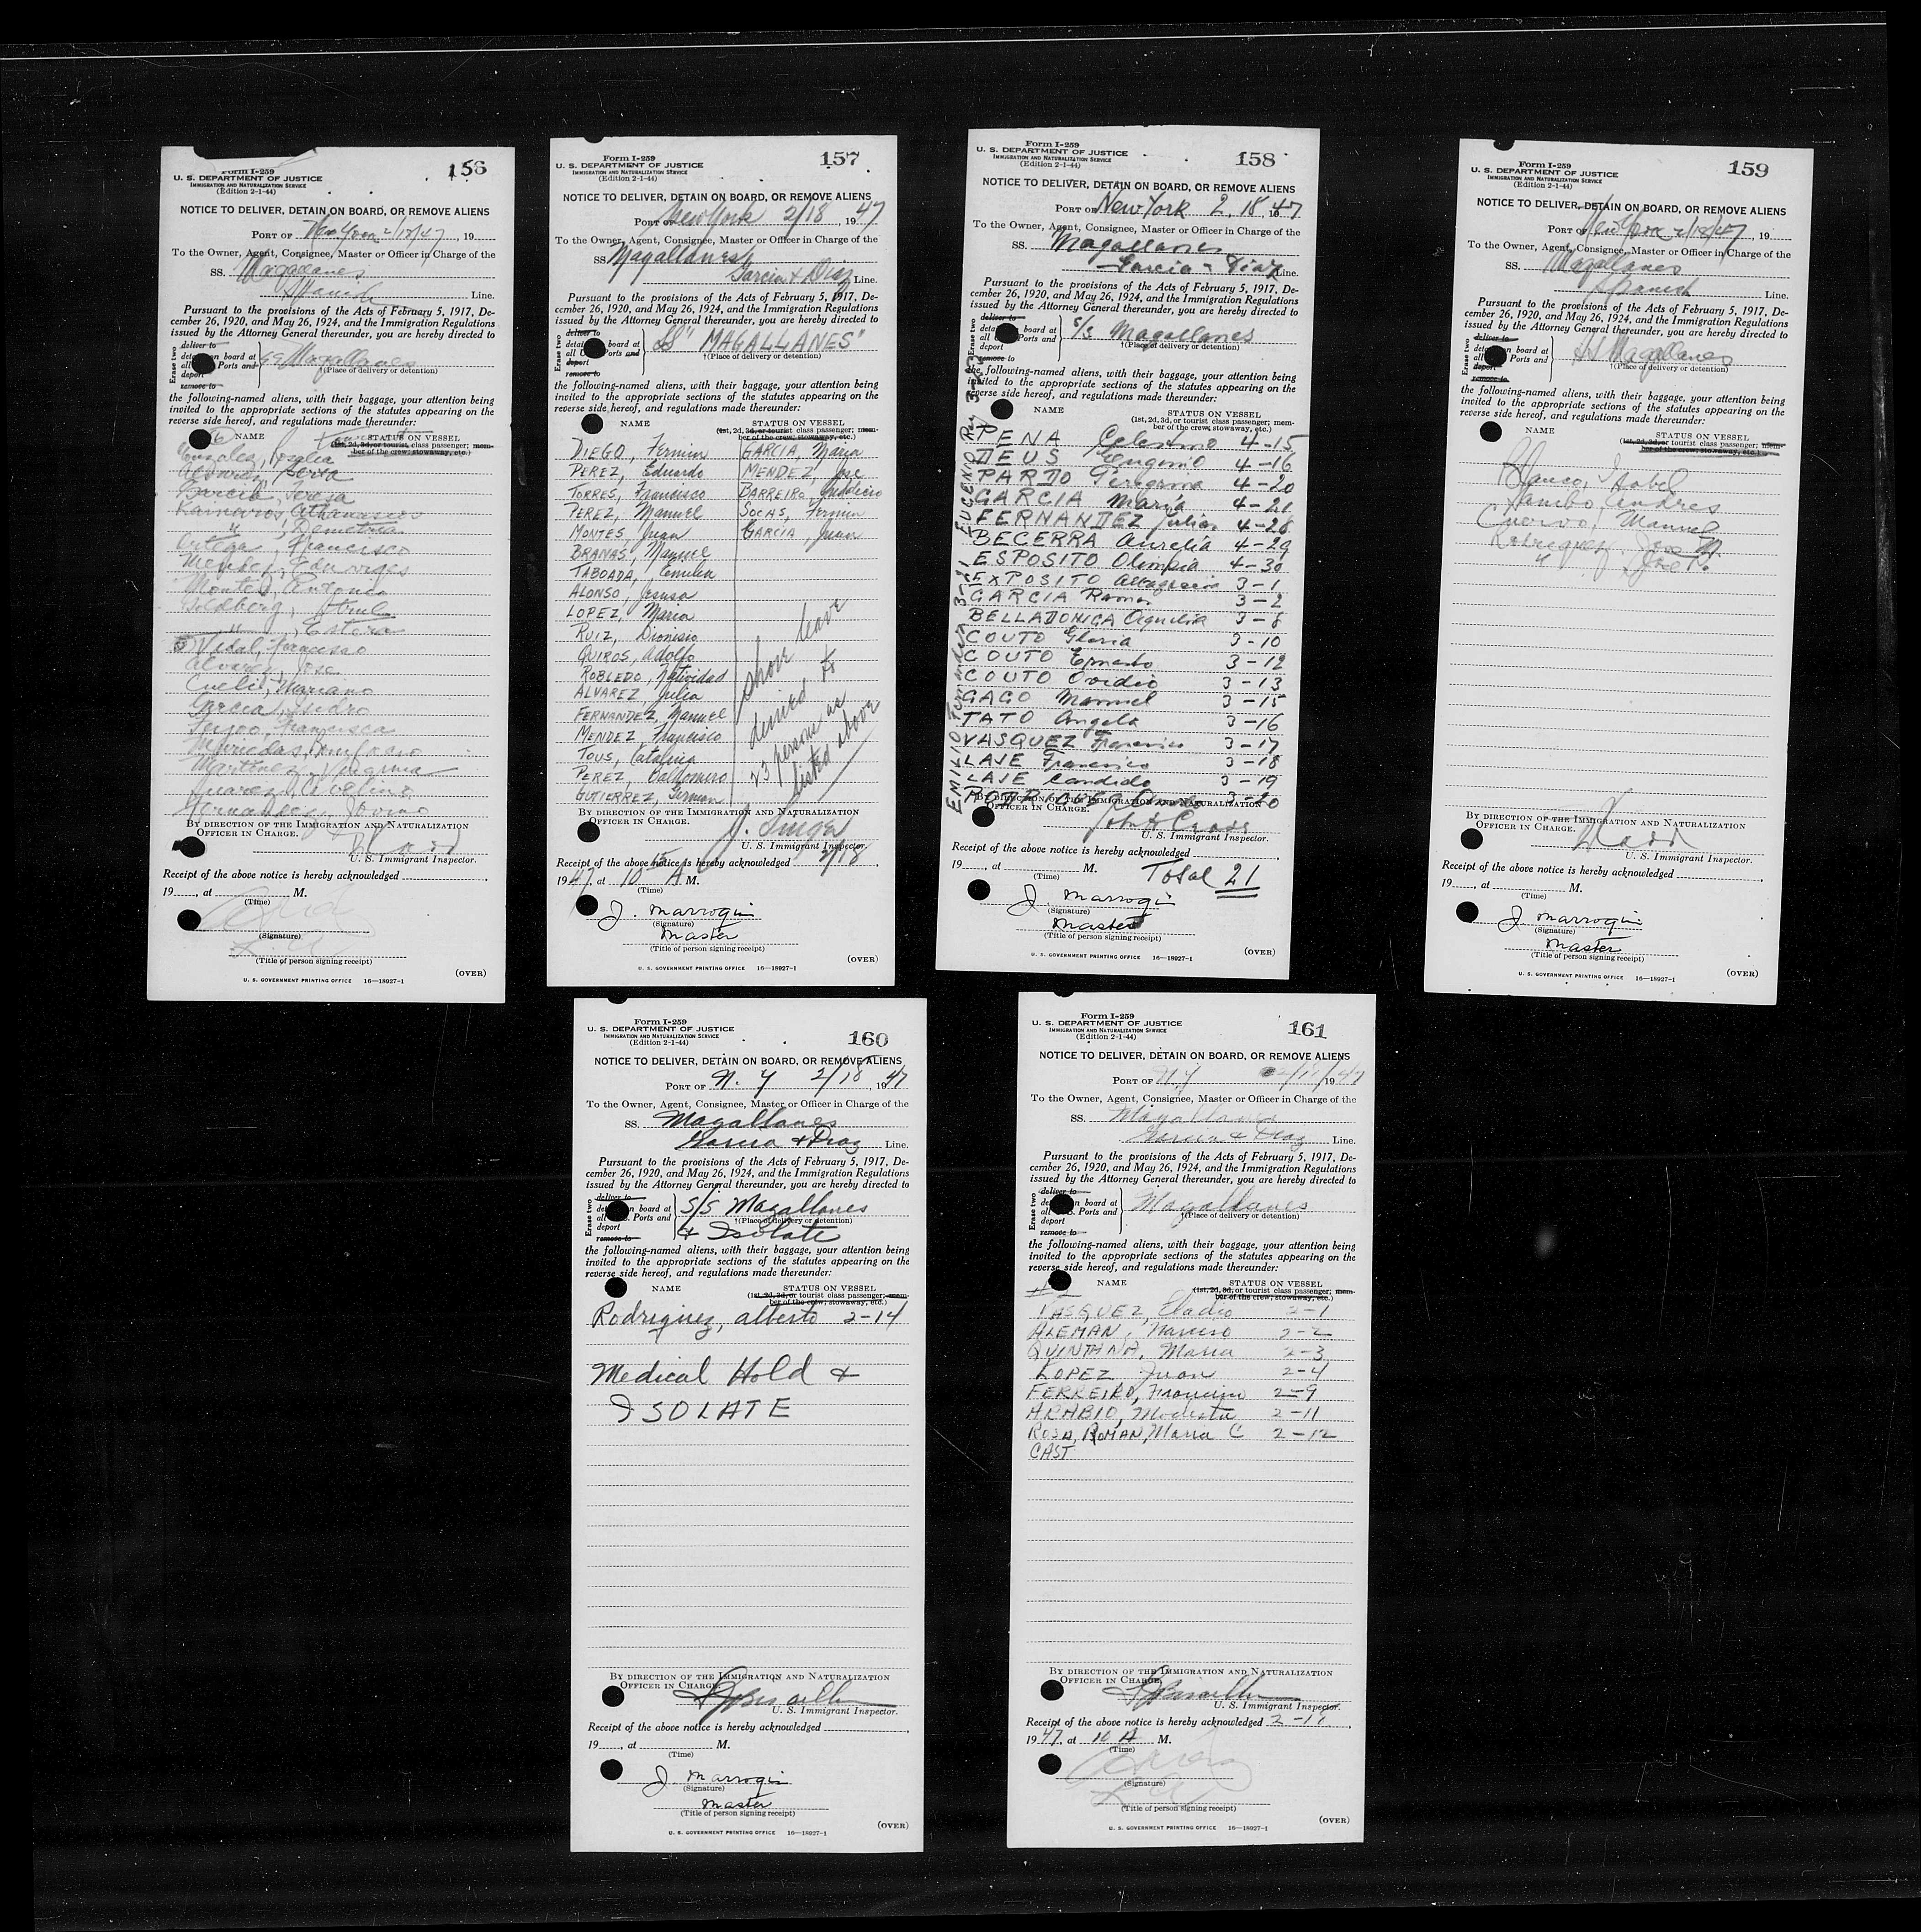 Form I-259
U. S. DEPARTMENT OF JUSTICE
IMMIGRATION AND NATURALIZATION SERVICE
(Edition 2-1-44)
156
NOTICE TO DELIVER, DETAIN ON BOARD, OR REMOVE ALIENS
PORT OF New York 2/18/47, 19
To the Owner, Agent, Consignee, Master or Officer in Charge of the
SS. Magallanes
Spanish Line.
Pursuant to the provisions of the Acts of February 5, 1917, De-
cember 26, 1920, and May 26, 1924, and the Immigration Regulations
issued by the Attorney General thereunder, you are hereby directed to
Erase two
deliver to
board at
all Ports and
deport
remove to
SS Magallanes
†(Place of delivery or detention)
the following-named aliens, with their baggage, your attention being
invited to the appropriate sections of the statutes appearing on the
reverse side hereof, and regulations made thereunder:
NAME STATUS ON VESSEL
(1st, 2d, 3d, or tourist class passenger; mem-
ber of the crew; stowaway, etc.)
Gonzalez, Rosalia
Alvarez,
Garcia, Teresa
Athanasios
", Demetria
Ortega, Francisco
Mendez, Eduviges
Montes, Antonio
Goldberg,
", Estera
Vidal, Francisco
Alvarez, Jose
Cueli, Mariano
Garcia, Isidro
Feijoo, Francisca
Martinez, Virginia
Suarez, Avelino
Fernandez,
BY DIRECTION OF THE IMMIGRATION AND NATURALIZATION
OFFICER IN CHARGE.
U. S. Immigrant Inspector.
Receipt of the above notice is hereby acknowledged
19, at M.
(Time)
(Signature)
(Title of person signing receipt)
(OVER)
U. S. GOVERNMENT PRINTING OFFICE 16—18927-1
Form I-259
U. S. DEPARTMENT OF JUSTICE
IMMIGRATION AND NATURALIZATION SERVICE
(Edition 2-1-44)
157
NOTICE TO DELIVER, DETAIN ON BOARD, OR REMOVE ALIENS
PORT OF New York 2/18, 1947
To the Owner, Agent, Consignee, Master or Officer in Charge of the
SS. Magallanes
Garcia & Diaz Line.
Pursuant to the provisions of the Acts of February 5, 1917, De-
cember 26, 1920, and May 26, 1924, and the Immigration Regulations
issued by the Attorney General thereunder, you are hereby directed to
Erase two
deliver to
board at
all Ports and
deport
remove to
SS "MAGALLANES"
†(Place of delivery or detention)
the following-named aliens, with their baggage, your attention being
invited to the appropriate sections of the statutes appearing on the
reverse side hereof, and regulations made thereunder:
NAME STATUS ON VESSEL
(1st, 2d, 3d, or tourist class passenger; mem-
ber of the crew; stowaway, etc.)
DIEGO, Fermin GARCIA, Maria
PEREZ, Eduardo MENDEZ, Jose
TORRES, Francisco BARREIRO, Indalecio
PEREZ, Manuel SOCAS, Fermin
MONTES, Juan GARCIA, Juan
BRANAS, Manuel
TABOADA, Emilia
ALONSO, Jesusa
LOPEZ, Maria
RUIZ, Dionisio
QUIROS, Adolfo
ROBLEDO, Natividad
ALVAREZ Julia
FERNANDEZ, Manuel
MENDEZ, Francisco
TOUS, Catalina
PEREZ, Baldomero
GUTIERREZ, German
shore leave
denied to
23 persons as
listed above
BY DIRECTION OF THE IMMIGRATION AND NATURALIZATION
OFFICER IN CHARGE.
J. Singer
U. S. Immigrant Inspector.
Receipt of the above notice is hereby acknowledged 2/18,
1947, at 10 15 A M.
(Time)
J. Marrogin
(Signature)
Master
(Title of person signing receipt)
(OVER)
U. S. GOVERNMENT PRINTING OFFICE 16—18927-1
Form I-259
U. S. DEPARTMENT OF JUSTICE
IMMIGRATION AND NATURALIZATION SERVICE
(Edition 2-1-44)
158
NOTICE TO DELIVER, DETAIN ON BOARD, OR REMOVE ALIENS
PORT OF New York 2, 18, 1947
To the Owner, Agent, Consignee, Master or Officer in Charge of the
SS. Magallanes
Garcia - Diaz Line.
Pursuant to the provisions of the Acts of February 5, 1917, De-
cember 26, 1920, and May 26, 1924, and the Immigration Regulations
issued by the Attorney General thereunder, you are hereby directed to
Erase two
deliver to
board at
Ports and
deport
remove to
S/S Magallanes
†(Place of delivery or detention)
the following-named aliens, with their baggage, your attention being
invited to the appropriate sections of the statutes appearing on the
reverse side hereof, and regulations made thereunder:
NAME STATUS ON VESSEL
(1st, 2d, 3d, or tourist class passenger; mem-
ber of the crew; stowaway, etc.)
PENA Celestino 4-15
DEUS Eugenio 4-16
PARDO Peregrina 4-20
GARCIA Maria 4-21
FERNANDEZ Julian 4-28
BECERRA Aurelia 4-29
ESPOSITO Olimpia 4-30
EXPOSITO Altagracia 3-1
GARCIA Ramon 3-2
BELLADONICA 3-8
COUTO Gloria 3-10
COUTO Ernesto 3-12
COUTO Ovidio 3-13
GAGO Manuel 3-15
TATO Angela 3-16
VASQUEZ Francisco 3-17
LAJE Francisco 3-18
LAJE Candido 3-19
RODRIGUEZ 3-20
EMILIO Fernandez 3-21
EUGENIO Rey 3-23
BY DIRECTION OF THE IMMIGRATION AND NATURALIZATION
OFFICER IN CHARGE.
John H Cross
U. S. Immigrant Inspector.
Receipt of the above notice is hereby acknowledged
19, at M.
(Time)
Total 21
J. Marrogin
(Signature)
Master
(Title of person signing receipt)
(OVER)
U. S. GOVERNMENT PRINTING OFFICE 16—18927-1
Form I-259
U. S. DEPARTMENT OF JUSTICE
IMMIGRATION AND NATURALIZATION SERVICE
(Edition 2-1-44)
159
NOTICE TO DELIVER, DETAIN ON BOARD, OR REMOVE ALIENS
PORT OF New York 2/18/47, 19
To the Owner, Agent, Consignee, Master or Officer in Charge of the
SS. Magallanes
Spanish Line.
Pursuant to the provisions of the Acts of February 5, 1917, De-
cember 26, 1920, and May 26, 1924, and the Immigration Regulations
issued by the Attorney General thereunder, you are hereby directed to
Erase two
deliver to
board at
all Ports and
deport
remove to
SS Magallanes
†(Place of delivery or detention)
the following-named aliens, with their baggage, your attention being
invited to the appropriate sections of the statutes appearing on the
reverse side hereof, and regulations made thereunder:
NAME STATUS ON VESSEL
(1st, 2d, 3d, or tourist class passenger; mem-
ber of the crew; stowaway, etc.)
Blanco, Isabel
Andres
Cuervo, Manuel
Rodriguez, Jose M.
" Jose R.
BY DIRECTION OF THE IMMIGRATION AND NATURALIZATION
OFFICER IN CHARGE.
U. S. Immigrant Inspector.
Receipt of the above notice is hereby acknowledged
19, at M.
(Time)
J. Marrogin
(Signature)
Master
(Title of person signing receipt)
(OVER)
U. S. GOVERNMENT PRINTING OFFICE 16—18927-1
Form I-259
U. S. DEPARTMENT OF JUSTICE
IMMIGRATION AND NATURALIZATION SERVICE
(Edition 2-1-44)
160
NOTICE TO DELIVER, DETAIN ON BOARD, OR REMOVE ALIENS
PORT OF N. Y 2/18, 1947
To the Owner, Agent, Consignee, Master or Officer in Charge of the
SS. Magallanes
Garcia & Diaz Line.
Pursuant to the provisions of the Acts of February 5, 1917, De-
cember 26, 1920, and May 26, 1924, and the Immigration Regulations
issued by the Attorney General thereunder, you are hereby directed to
Erase two
deliver to
board at
all Ports and
deport
remove to
S/S Magallanes
†(Place of delivery or detention)
& Isolate
the following-named aliens, with their baggage, your attention being
invited to the appropriate sections of the statutes appearing on the
reverse side hereof, and regulations made thereunder:
NAME STATUS ON VESSEL
(1st, 2d, 3d, or tourist class passenger; mem-
ber of the crew; stowaway, etc.)
Rodriguez, Alberto 2-14
Medical Hold &
ISOLATE
BY DIRECTION OF THE IMMIGRATION AND NATURALIZATION
OFFICER IN CHARGE.
U. S. Immigrant Inspector.
Receipt of the above notice is hereby acknowledged
19, at M.
(Time)
J. Marrogin
(Signature)
Master
(Title of person signing receipt)
(OVER)
U. S. GOVERNMENT PRINTING OFFICE 16—18927-1
Form I-259
U. S. DEPARTMENT OF JUSTICE
IMMIGRATION AND NATURALIZATION SERVICE
(Edition 2-1-44)
161
NOTICE TO DELIVER, DETAIN ON BOARD, OR REMOVE ALIENS
PORT OF N.Y 1947
To the Owner, Agent, Consignee, Master or Officer in Charge of the
SS. Magallanes
Garcia & Diaz Line.
Pursuant to the provisions of the Acts of February 5, 1917, De-
cember 26, 1920, and May 26, 1924, and the Immigration Regulations
issued by the Attorney General thereunder, you are hereby directed to
Erase two
deliver to
board at
all Ports and
deport
remove to
Magallanes
†(Place of delivery or detention)
the following-named aliens, with their baggage, your attention being
invited to the appropriate sections of the statutes appearing on the
reverse side hereof, and regulations made thereunder:
NAME STATUS ON VESSEL
(1st, 2d, 3d, or tourist class passenger; mem-
ber of the crew; stowaway, etc.)
VASQUEZ, Eladio 2-1
ALEMAN, Narciso 2-2
QUINTANA, Maria 2-3
LOPEZ, Juan 2-4
FERREIRO, Francisco 2-9
ARABIO, Modesta 2-11
ROSA, ROMAN, Maria C 2-12
CAST
BY DIRECTION OF THE IMMIGRATION AND NATURALIZATION
OFFICER IN CHARGE.
U. S. Immigrant Inspector.
Receipt of the above notice is hereby acknowledged
1947, at 10 A M.
(Time)
(Signature)
(Title of person signing receipt)
(OVER)
U. S. GOVERNMENT PRINTING OFFICE 16—18927-1